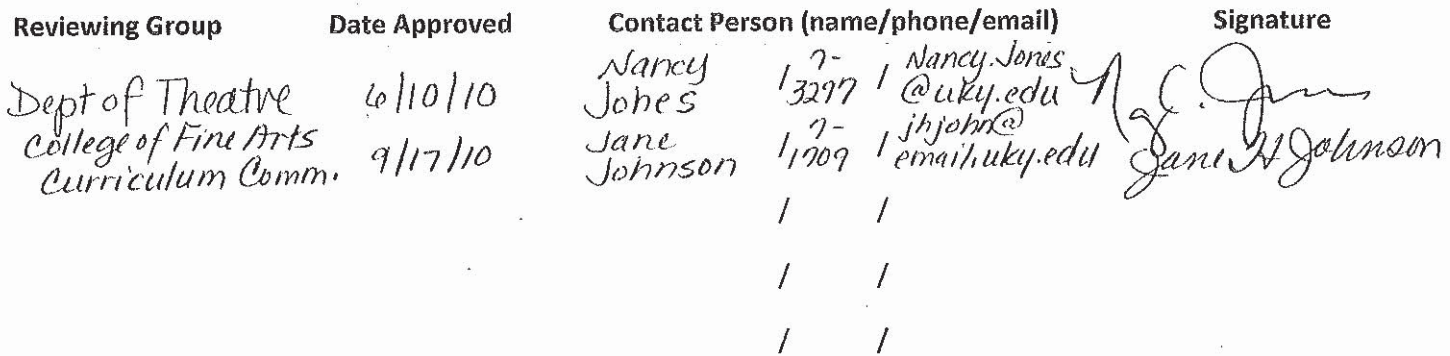 Reviewing Group Date Approved Contact Person (name/phone/email) Signature
Dept of Theatre 6/10/10 Nancy Jones / 7-3297 / Nancy.Jones@uky.edu
College of Fine Arts Curriculum Comm. 9/17/10 Jane Johnson / 7-1709 / jhjohn@email.uky.edu Jane H Johnson
/ /
/ /
/ /